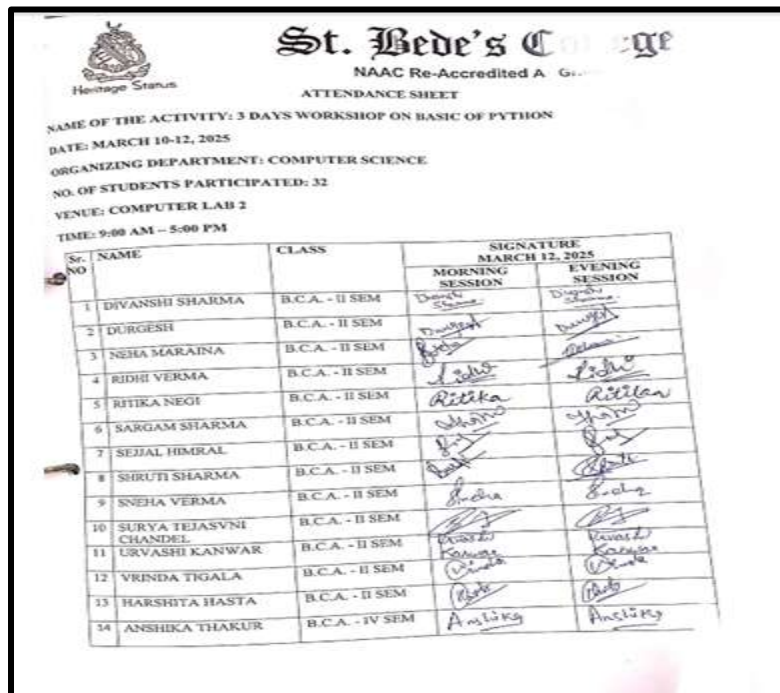 St. Bede's C
Heritage Status
NAAC Re-Accredited A
ATTENDANCE SHEET
NAME OF THE ACTIVITY: 3 DAYS WORKSHOP ON BASIC OF PYTHON
DATE: MARCH 10-12, 2025
ORGANIZING DEPARTMENT: COMPUTER SCIENCE
NO. OF STUDENTS PARTICIPATED: 32
VENUE: COMPUTER LAB 2
TIME: 9:00 AM – 5:00 PM
Sr. NO NAME CLASS SIGNATURE MARCH 12, 2025
MORNING SESSION EVENING SESSION
1 DIVANSHI SHARMA B.C.A. - II SEM
2 DURGESH B.C.A. - II SEM Durgesh Durgesh
3 NEHA MARAINA B.C.A. - II SEM
4 RIDHI VERMA B.C.A. - II SEM Ridhi Ridhi
5 RITIKA NEGI B.C.A. - II SEM Ritika Ritika
6 SARGAM SHARMA B.C.A. - II SEM
7 SEJJAL HIMRAL B.C.A. - II SEM
8 SHRUTI SHARMA B.C.A. - II SEM
9 SNEHA VERMA B.C.A. - II SEM Sneha Sneha
10 SURYA TEJASVNI CHANDEL B.C.A. - II SEM
11 URVASHI KANWAR B.C.A. - II SEM Urvashi Kanwar Urvashi Kanwar
12 VRINDA TIGALA B.C.A. - II SEM Vrinda Vrinda
13 HARSHITA HASTA B.C.A. - II SEM
14 ANSHIKA THAKUR B.C.A. - IV SEM Anshika Anshika